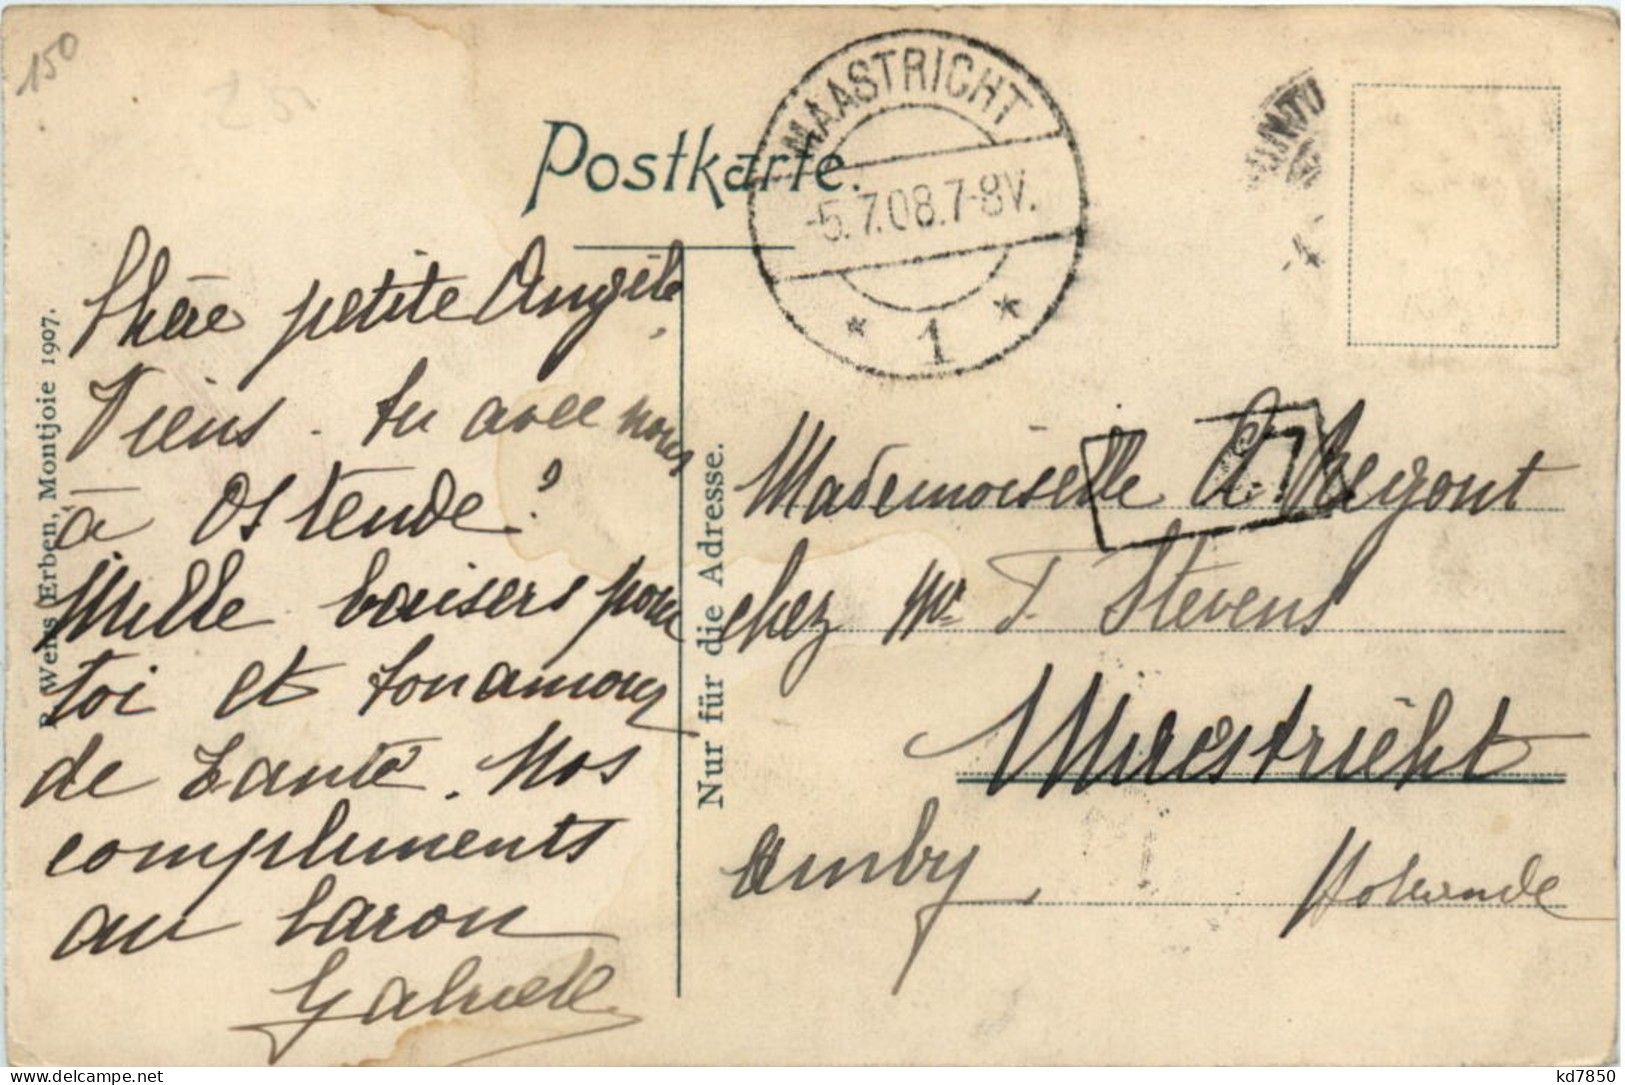 150
25
Postkarte.
MAASTRICHT
-5.7.08.7-8V.
* 1 *
Chère petite Angèle
Viens-tu avec nous
à Ostende?
Mille baisers pour
toi et ton amour
de Tante. Nos
compliments
au baron
Gabrielle
P. Weiss Erben, Montjoie 1907.
Nur für die Adresse.
Mademoiselle A. Regout
chez Mr T. Stevens
Maestricht
Amby
Hollande
kd7850